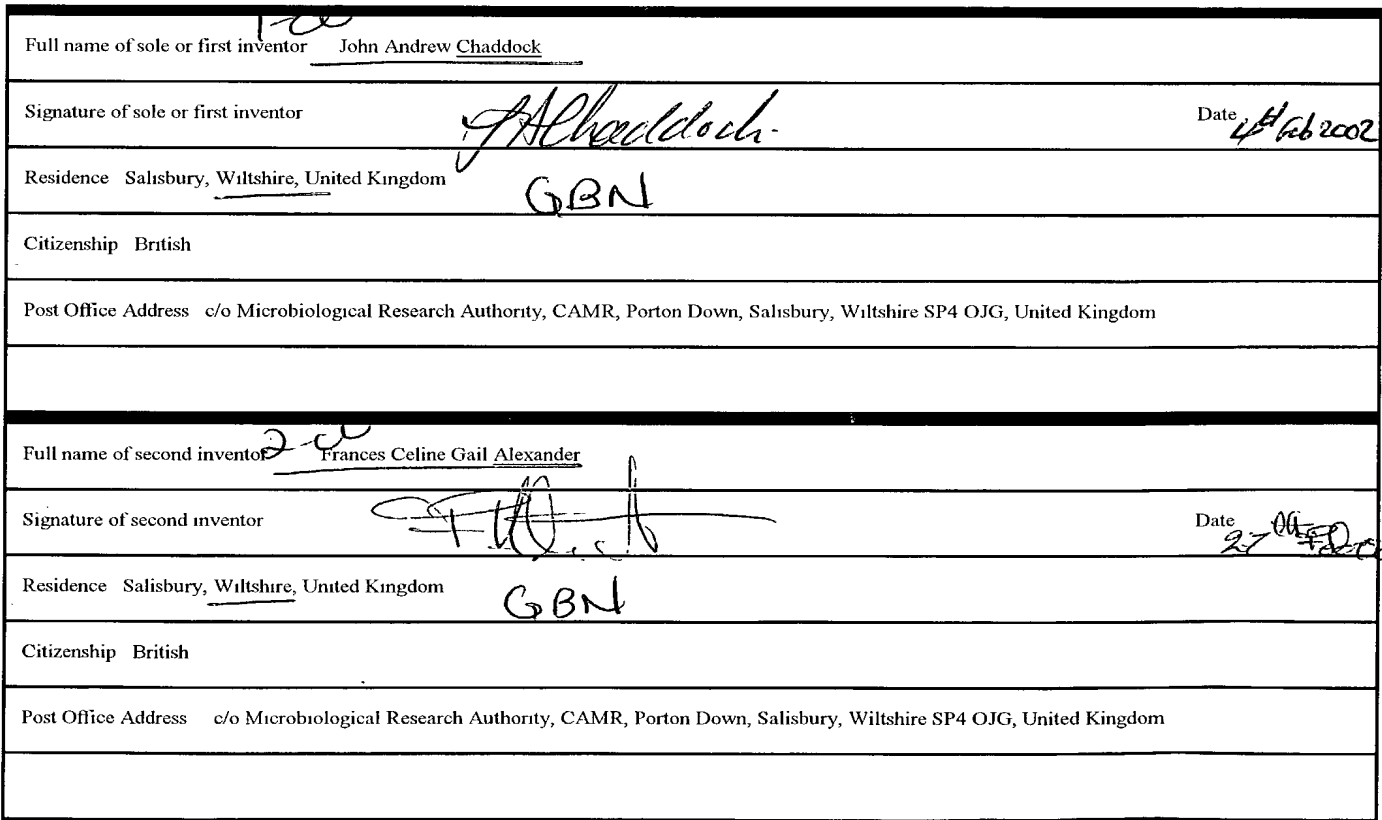 Full name of sole or first inventor John Andrew Chaddock
Signature of sole or first inventor JAChaddock. Date 4th Feb 2002
Residence Salisbury, Wiltshire, United Kingdom GBN
Citizenship British
Post Office Address c/o Microbiological Research Authority, CAMR, Porton Down, Salisbury, Wiltshire SP4 OJG, United Kingdom
Full name of second inventor Frances Celine Gail Alexander
Signature of second inventor Date 27th
Residence Salisbury, Wiltshire, United Kingdom GBN
Citizenship British
Post Office Address c/o Microbiological Research Authority, CAMR, Porton Down, Salisbury, Wiltshire SP4 OJG, United Kingdom